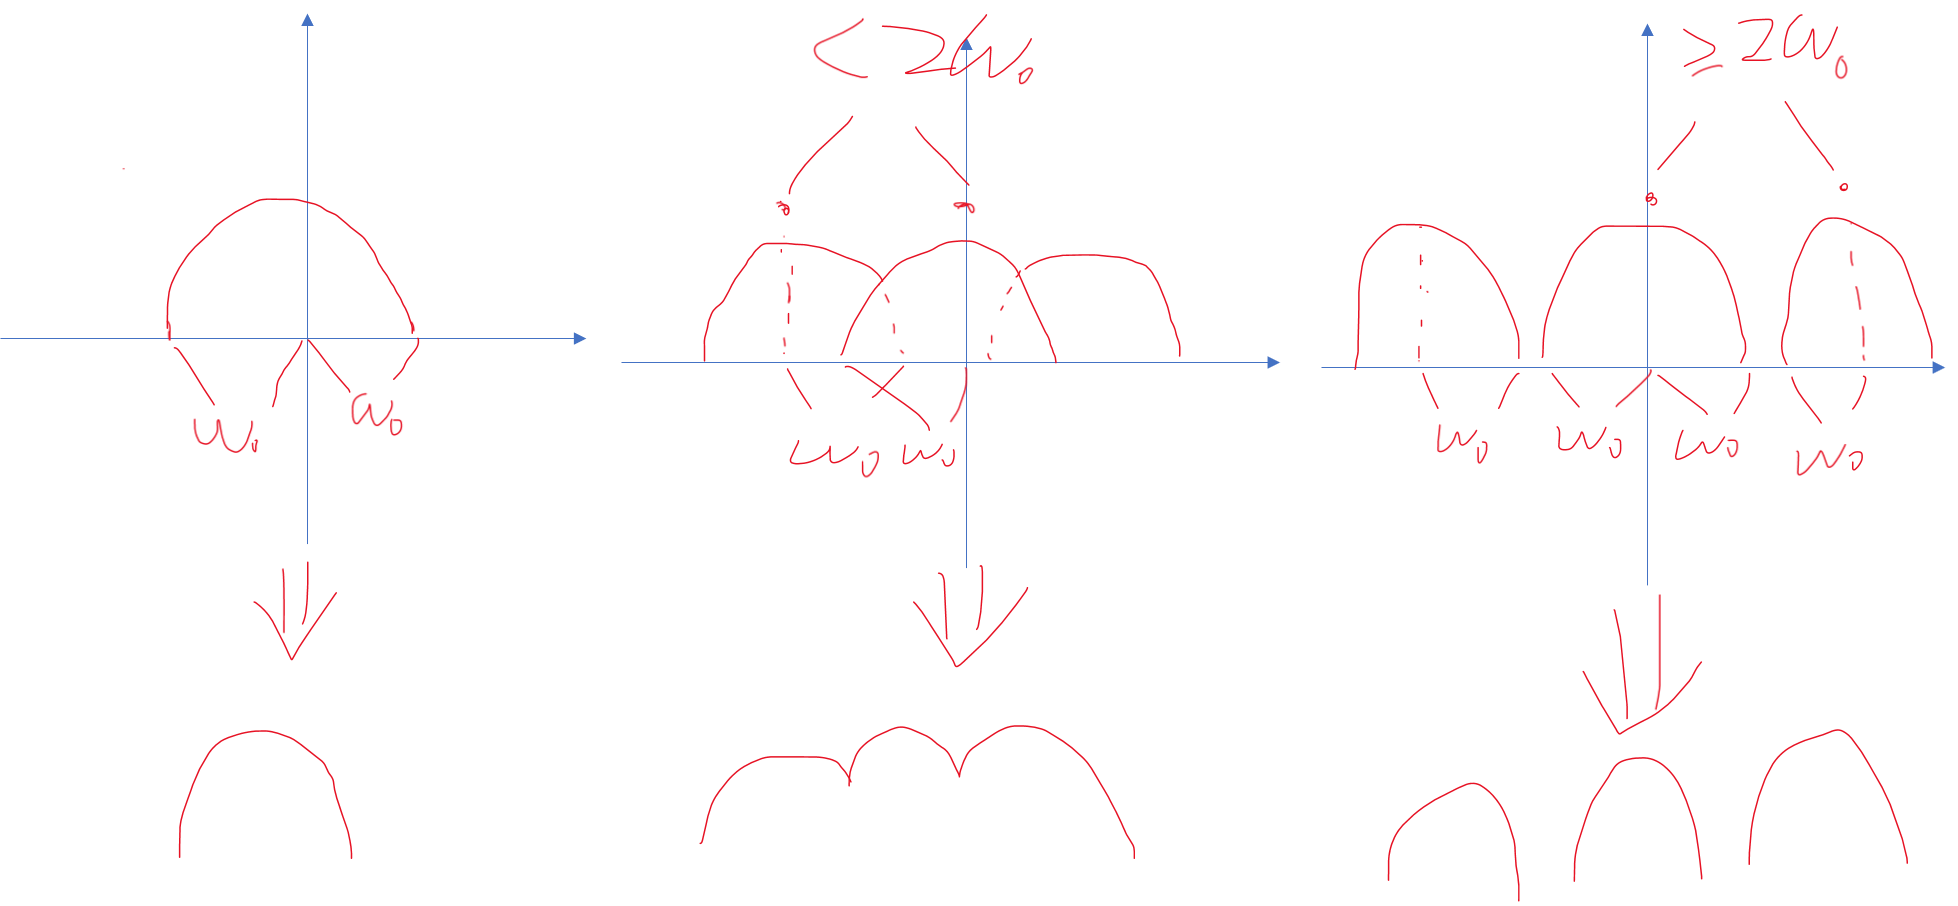 < 2W₀
≥ 2W₀
W₀ W₀
W₀ W₀
W₀ W₀ W₀ W₀